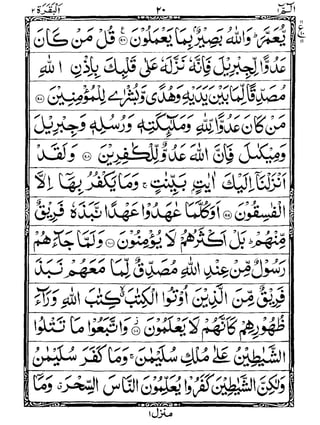 الٓمّٓ ١ ٢٠ البقرة ٢
يُّعَمَّرَ ؕ وَاللّٰهُ بَصِيْرٌۢ بِمَا يَعْمَلُوْنَ ۟ قُلْ مَنْ كَانَ
عَدُوًّا لِّجِبْرِيْلَ فَاِنَّهٗ نَزَّلَهٗ عَلٰى قَلْبِكَ بِاِذْنِ اللّٰهِ
مُصَدِّقًا لِّمَا بَيْنَ يَدَيْهِ وَهُدًى وَّبُشْرٰى لِلْمُؤْمِنِيْنَ
مَنْ كَانَ عَدُوًّا لِّلّٰهِ وَمَلٰٓئِكَتِهٖ وَرُسُلِهٖ وَجِبْرِيْلَ
وَمِيْكٰىلَ فَاِنَّ اللّٰهَ عَدُوٌّ لِّلْكٰفِرِيْنَ وَلَقَدْ
اَنْزَلْنَاۤ اِلَيْكَ اٰيٰتٍۭ بَيِّنٰتٍ ۚ وَمَا يَكْفُرُ بِهَاۤ اِلَّا
الْفٰسِقُوْنَ اَوَكُلَّمَا عٰهَدُوْا عَهْدًا نَّبَذَهٗ فَرِيْقٌ
مِّنْهُمْ ؕ بَلْ اَكْثَرُهُمْ لَا يُؤْمِنُوْنَ وَلَمَّا جَآءَهُمْ
رَسُوْلٌ مِّنْ عِنْدِ اللّٰهِ مُصَدِّقٌ لِّمَا مَعَهُمْ نَبَذَ
فَرِيْقٌ مِّنَ الَّذِيْنَ اُوْتُوا الْكِتٰبَ ۙ كِتٰبَ اللّٰهِ وَرَآءَ
ظُهُوْرِهِمْ كَاَنَّهُمْ لَا يَعْلَمُوْنَ وَاتَّبَعُوْا مَا تَتْلُوا
الشَّيٰطِيْنُ عَلٰى مُلْكِ سُلَيْمٰنَ ۚ وَمَا كَفَرَ سُلَيْمٰنُ
وَلٰكِنَّ الشَّيٰطِيْنَ كَفَرُوْا يُعَلِّمُوْنَ النَّاسَ السِّحْرَ ۗ وَمَاۤ
منزل ١